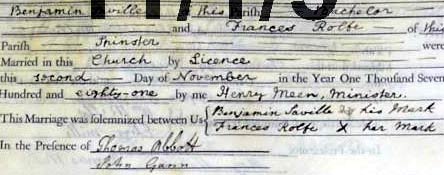 Benjamin Saville this Parish Bachelor
and Frances Rolfe of this
Parish Spinster were
Married in this Church by Licence
this second Day of November in the Year One Thousand Seven
Hundred and eighty-one by me Henry Meen, Minister.
This Marriage was solemnized between Us { Benjamin Saville his Mark
Frances Rolfe X her Mark
In the Presence of Thomas Abbott
John Gunn